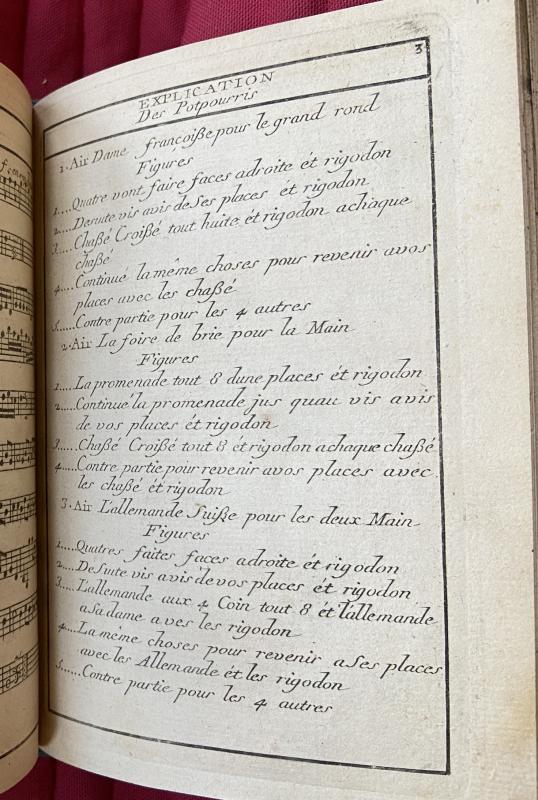 3
EXPLICATION
Des Potpourris
1. Air Dame françoiße pour le grand rond
Figures
1....Quatre vont faire faces adroite ét rigodon
2....Desuite vis avis de Ses places et rigodon
3....Chaßé Croißé tout huite ét rigodon achaque
chaßé
4....Continué la même choses pour revenir avos
places avec les chaßé
5.....Contre partie pour les 4 autres
2. Air La foire de brie pour la Main
Figures
1....La promenade tout 8 dune places ét rigodon
2.....Continué la promenade jus quau vis avis
de vos places ét rigodon
3.....Chaßé Croißé tout 8 ét rigodon achaque chaßé
4....Contre partie pour revenir avos places avec
les chaßé ét rigodon
3. Air L'allemande Suiße pour les deux Main
Figures
1....Quatres faites faces adroite ét rigodon
2....DeSuite vis avis de vos places ét rigodon
3....L'allemande aux 4 Coin tout 8 ét l'allemande
asa dame aves les rigodon
4....La même choses pour revenir aSes places
avec les Allemande ét les rigodon
5......Contre partie pour les 4 autres